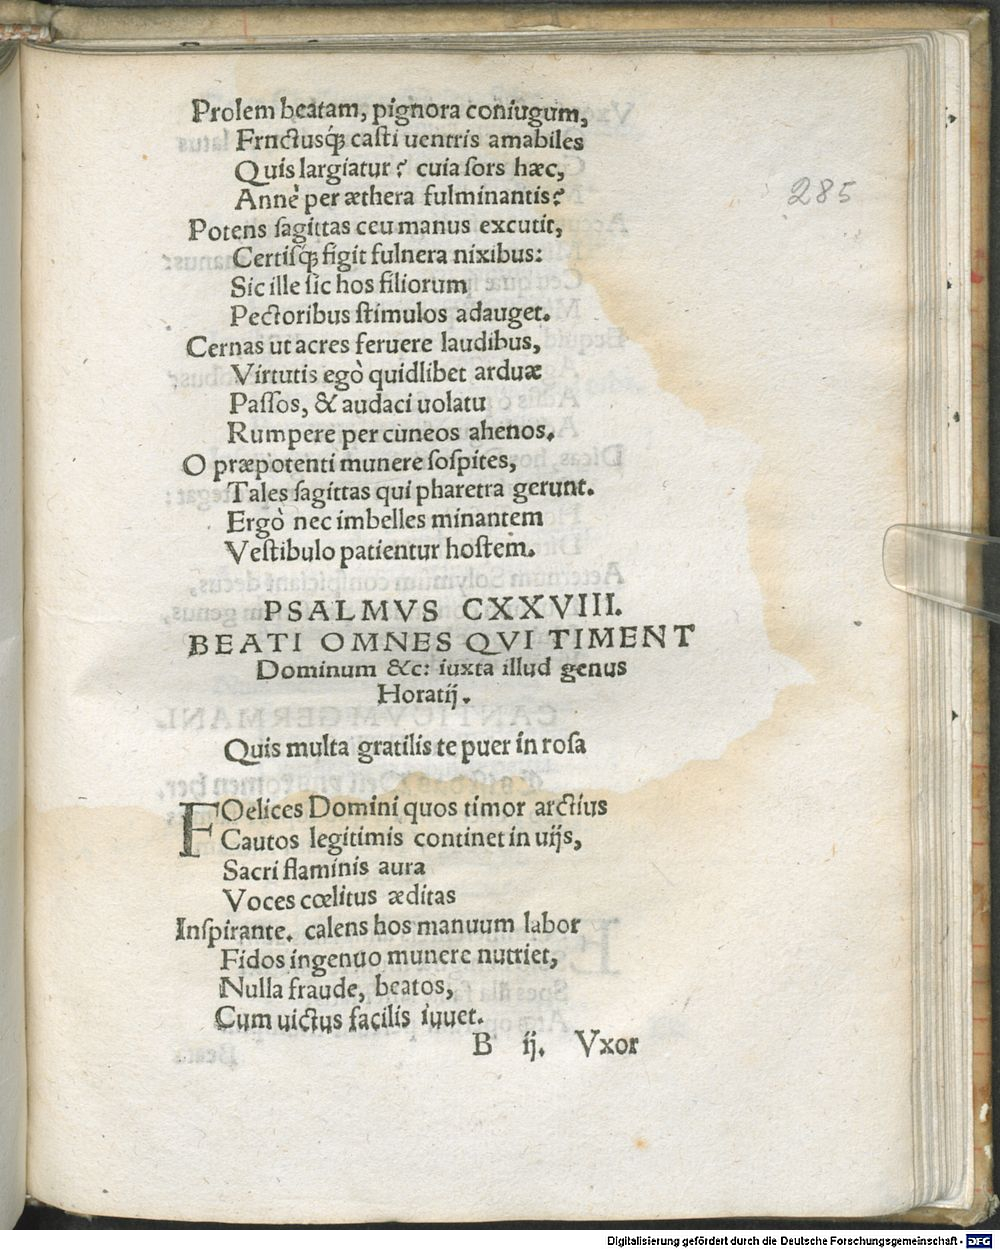 Prolem beatam, pignora coniugum,
Frnctusq́; casti uentris amabiles
Quis largiatur? cuia sors hæc,
Annè per æthera fulminantis?
Potens sagittas ceu manus excutit,
Certisq́; figit fulnera nixibus:
Sic ille sic hos filiorum
Pectoribus stimulos adauget.
Cernas ut acres feruere laudibus,
Virtutis egò quidlibet arduæ
Passos, & audaci uolatu
Rumpere per cuneos ahenos.
O præpotenti munere sospites,
Tales sagittas qui pharetra gerunt.
Ergò nec imbelles minantem
Vestibulo patientur hostem.
PSALMVS CXXVIII.
BEATI OMNES QVI TIMENT
Dominum &c: iuxta illud genus
Horatij.
Quis multa gratilis te puer in rosa
FOelices Domini quos timor arctius
Cautos legitimis continet in uijs,
Sacri flaminis aura
Voces cœlitus æditas
Inspirante. calens hos manuum labor
Fidos ingenuo munere nutriet,
Nulla fraude, beatos,
Cum uictus facilis iuuet.
B ij. Vxor
285
Digitalisierung gefördert durch die Deutsche Forschungsgemeinschaft - DFG